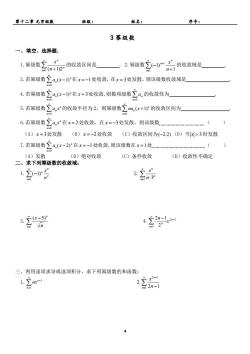 第十二章 无穷级数 班级: 姓名: 序号:
3 幂级数
一、填空、选择题:
1. 幂级数 $\sum_{n=1}^{\infty} \frac{x^n}{(n+1)2^n}$ 的收敛区间是________. 2. 幂级数 $\sum_{n=1}^{\infty} (-1)^{n+1} \frac{x^n}{n+1}$ 的收敛域是________.
3. 若幂级数 $\sum a_n(x-1)^n$ 在 $x=-1$ 处收敛, 在 $x=3$ 处发散, 则该级数收敛域是________.
4. 若幂级数 $\sum a_n(x-1)^n$ 在 $x=3$ 处收敛, 则数项级数 $\sum a_n$ 的收敛性为________.
5. 若幂级数 $\sum a_n x^n$ 的收敛半径为 2, 则幂级数 $\sum na_n(x+1)^n$ 的收敛区间为________.
6. 若幂级数 $\sum a_n x^n$ 在 $x=2$ 处收敛, 在 $x=-3$ 处发散, 则该级数________( )
(A) $x=3$ 处发散 (B) $x=-2$ 处收敛 (C) 收敛区间为(-2,2) (D) 当$|x|>3$时发散
7. 若幂级数 $\sum a_n(x-2)^n$ 在 $x=-1$ 处收敛, 则该级数在 $x=1$ 处________( )
(A) 发散 (B) 绝对收敛 (C) 条件收敛 (D) 收敛性不确定
二、求下列幂级数的收敛域:
1. $\sum_{n=1}^{\infty} (-1)^n \frac{x^n}{n^2}$ 2. $\sum_{n=1}^{\infty} \frac{x^n}{n \cdot 3^n}$
3. $\sum_{n=1}^{\infty} \frac{(x-5)^n}{\sqrt{n}}$ 4. $\sum_{n=1}^{\infty} \frac{2n-1}{2^n} x^{2n-2}$
三、利用逐项求导或逐项积分, 求下列幂级数的和函数:
1. $\sum_{n=1}^{\infty} nx^{n-1}$ 2. $\sum_{n=1}^{\infty} \frac{x^{2n-1}}{2n-1}$
4